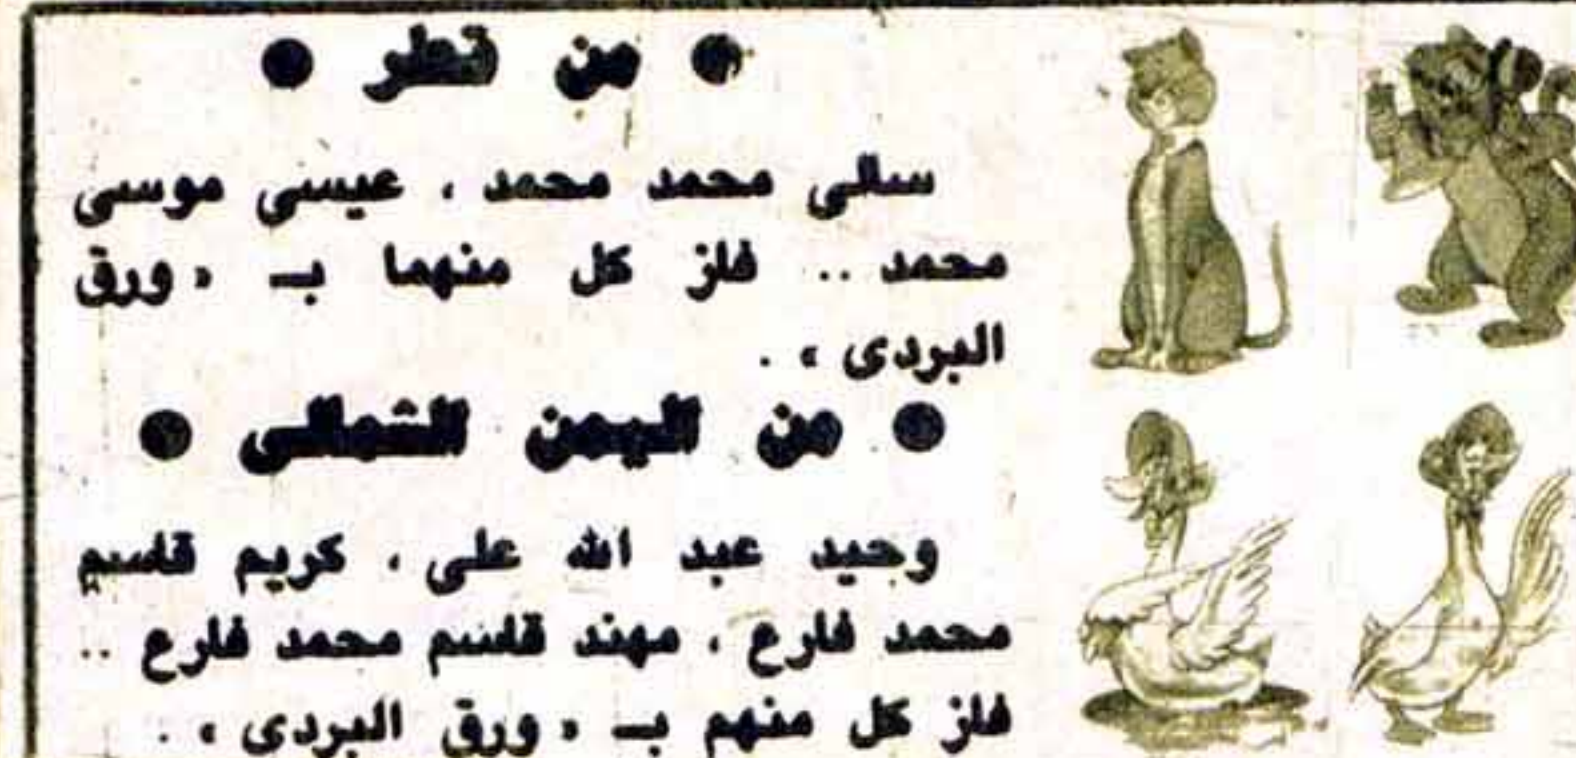 ● من قطر ●
سالى محمد محمد ، عيسى موسى
محمد .. فاز كل منهما بـ « ورق
البردى » .
● من اليمن الشمالى ●
وحيد عبد الله على ، كريم قاسم
محمد فارع ، مهند قاسم محمد فارع ..
فاز كل منهم بـ « ورق البردى » .